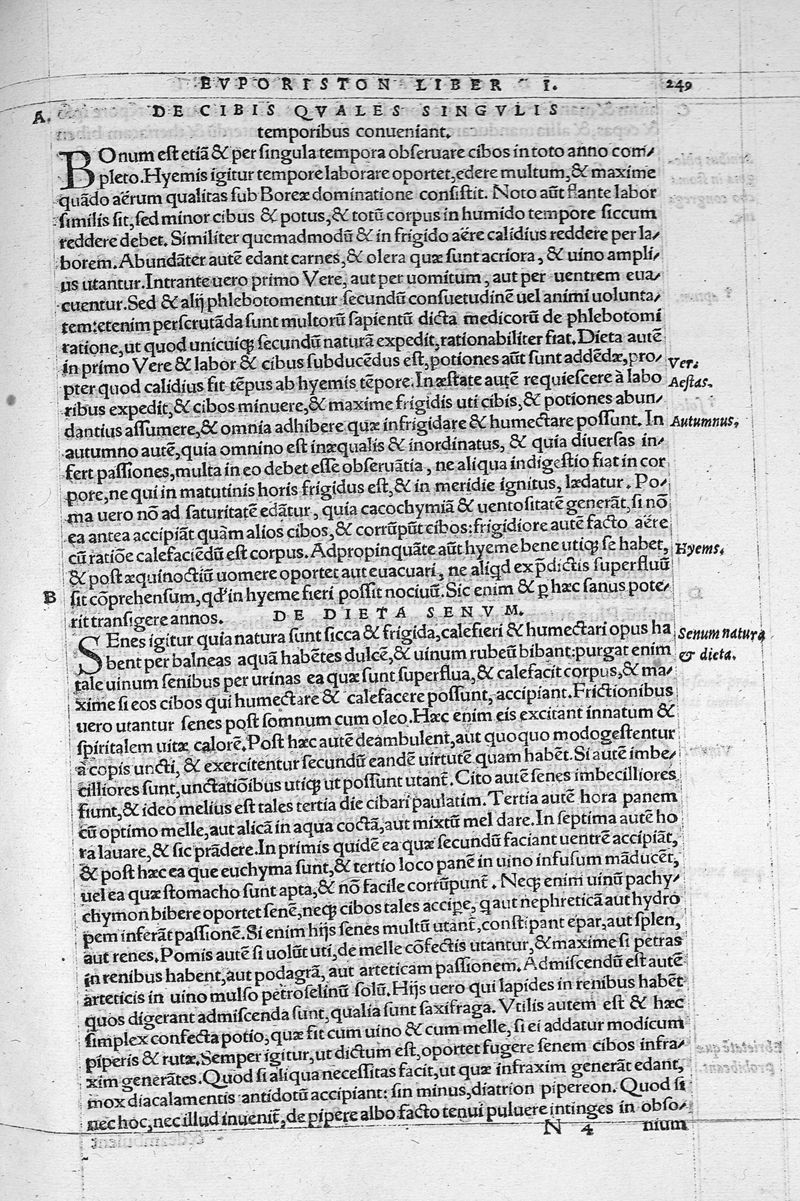 EVPORISTON LIBER I. 249
A. DE CIBIS QVALES SINGVLIS
temporibus conueniant.
BOnum est etiã & per singula tempora obseruare cibos in toto anno com/
pleto. Hyemis igitur tempore laborare oportet, edere multum, & maxime
quãdo aërum qualitas sub Boreæ dominatione consistit. Noto aũt flante labor
similis sit, sed minor cibus & potus, & totũ corpus in humido tempore siccum
reddere debet. Similiter quemadmodũ & in frigido aëre calidius reddere per la/
borem. Abundãter autẽ edant carnes, & olera quæ sunt acriora, & uino ampli/
us utantur. Intrante uero primo Vere, aut per uomitum, aut per uentrem eua/
cuentur. Sed & alij phlebotomentur secundũ consuetudinẽ uel animi uolunta/
tem: etenim perscrutãda sunt multorũ sapientũ dicta medicorũ de phlebotomi
ratione, ut quod unicuiq; secundũ naturã expedit, rationabiliter fiat. Dieta autẽ
in primo Vere & labor & cibus subducẽdus est, potiones aũt sunt addẽdæ, pro/
Ver.
pter quod calidius fit tẽpus ab hyemis tẽpore. In æstate autẽ requiescere à labo
Aestas.
ribus expedit, & cibos minuere, & maxime frigidis uti cibis, & potiones abun/
dantius assumere, & omnia adhibere quæ infrigidare & humectare possunt. In
Autumnus,
autumno autẽ, quia omnino est inæqualis & inordinatus, & quia diuersas in/
fert passiones, multa in eo debet esse obseruãtia, ne aliqua indigestio fiat in cor
pore, ne qui in matutinis horis frigidus est, & in meridie ignitus, lædatur. Po/
ma uero nõ ad saturitatẽ edãtur, quia cacochymiã & uentositatẽ generãt, si nõ
ea antea accipiãt quàm alios cibos, & corrũpũt cibos: frigidiore autẽ facto aëre
cũ ratiõe calefaciẽdũ est corpus. Adpropinquãte aũt hyeme bene utiq; se habet,
Hyems.
& post æquinoctiũ uomere oportet aut euacuari, ne aliqd ex p̃dictis superfluũ
B sit cõprehensum, qđ in hyeme fieri possit nociuũ. Sic enim & ꝑ hæc sanus pote/
rit transigere annos. DE DIETA SENVM.
SEnes igitur quia natura sunt sicca & frigida, calefieri & humectari opus ha
Senum natura
bent per balneas aquã habẽtes dulcẽ, & uinum rubeũ bibant: purgat enim
& dieta.
tale uinum senibus per urinas ea quæ sunt superflua, & calefacit corpus, & ma/
xime si eos cibos qui humectare & calefacere possunt, accipiant. Frictionibus
uero utantur senes post somnum cum oleo. Hæc enim eis excitant innatum &
spiritalem uitæ calorẽ. Post hæc autẽ deambulent, aut quoquo modo gestentur
a copis uncti, & exercitentur secundũ eandẽ uirtutẽ quam habẽt. Si autẽ imbe/
cilliores sunt, unctatiõibus utiq; ut possunt utant̃. Cito autẽ senes imbecilliores
fiunt, & ideo melius est tales tertia die cibari paulatim. Tertia autẽ hora panem
cũ optimo melle, aut alicã in aqua coctã, aut mixtũ mel dare. In septima autẽ ho
ra lauare, & sic prãdere. In primis quidẽ ea quæ secundũ faciant uentrẽ accipiãt,
& post hæc ea que euchyma sunt, & tertio loco panẽ in uino infusum mãducẽt,
uel ea quæ stomacho sunt apta, & nõ facile corrũpunt̃. Neq; enim uinũ pachy/
chymon bibere oportet senẽ, neq; cibos tales accipe, q aut nephreticã aut hydro
pem inferãt passionẽ. Si enim hijs senes multũ utant̃, constipant epar, aut splen,
aut renes. Pomis autẽ si uolũt uti, de melle cõfectis utantur, & maxime si petras
in renibus habent, aut podagrã, aut arteticam passionem. Admiscendũ est autẽ
arteticis in uino mulso petroselinũ solũ. Hijs uero qui lapides in renibus habẽt
quos digerant admiscenda sunt, qualia sunt saxifraga. Vtilis autem est & hæc
simplex confecta potio, quæ fit cum uino & cum melle, si ei addatur modicum
piperis & rutæ. Semper igitur, ut dictum est, oportet fugere senem cibos infra/
xim generãtes. Quod si aliqua necessitas facit, ut quæ infraxim generãt edant,
mox diacalamentis antidotũ accipiant: sin minus, diatrion pipereon. Quod si
nec hoc, nec illud inuenit̃, de pipere albo facto tenui puluere intinges in obso/
N 4 nium